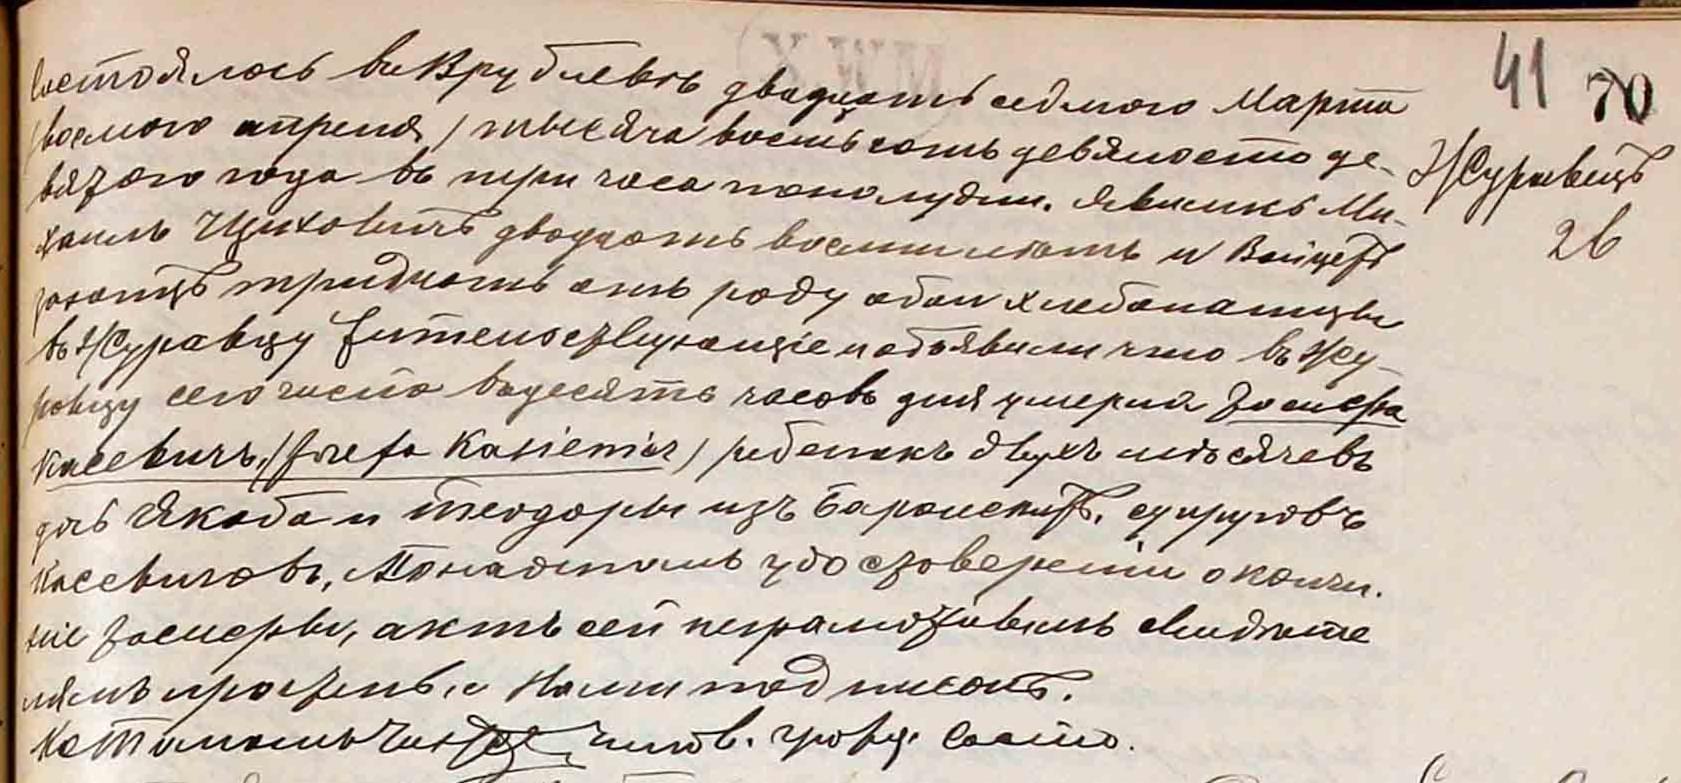 41 70
Журавецъ
26
Состоялось въ Врублевѣ двадцать седьмого Марта
(восьмого апреля) тысяча восемьсотъ девяносто де-
вятого года въ три часа пополудни. Явились Ми-
хаилъ двадцать восьми лѣтъ и Войцехъ
тридцать отъ роду оба хлебопашцы
въ Журавцу жительствующіе и объявили что въ Жу-
равцу сего числа въ десять часовъ дня умерла Юзефа
Касевичъ, (Józefa Kasiewicz) ребенокъ двухъ мѣсячевъ
дочь Якоба и Теодоры изъ супруговъ
Касевичовъ, По настоящемъ удостоверении о кончи.
ніе Юзефы, актъ сей неграмотнымъ свидѣте
лямъ прочтенъ, и Нами подписанъ.
чинов. гражд. Сост.